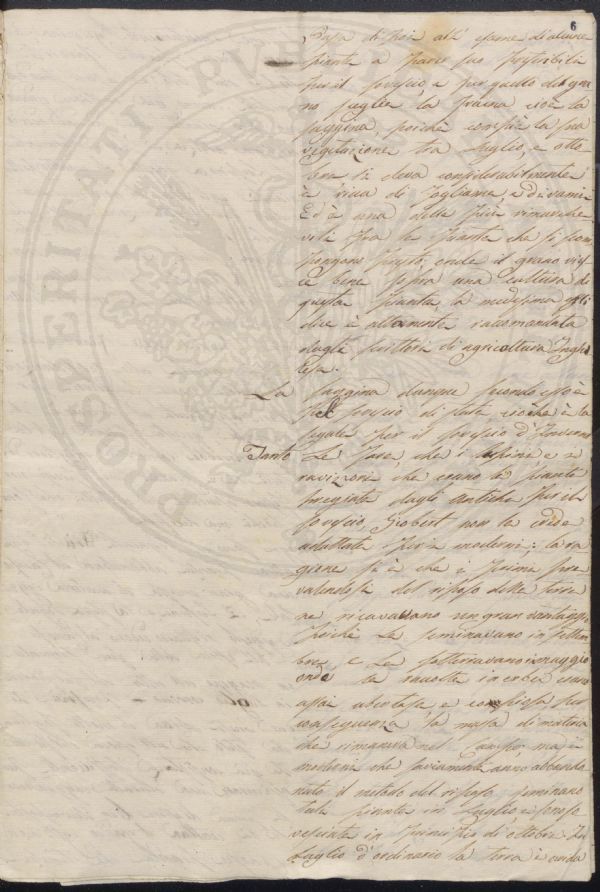 6
Passa di poi all' esame di alcune
piante a parer suo preferibili
per il sovescio, e per quello di gra
no sceglie la fraina cioè la
saggina, poichè compie la sua
vegetazione tra Luglio, e otto
bre si eleva considerabilmente
è ricca di fogliame, e di rami
Ed è una delle più rimarche
voli fra le piante che si scom
pongono presto, onde il grano ries
ce bene sopra una cultura di
questa pianta, la medesima
dice è altamente raccomandata
dagli scrittori di agricoltura Inghi
lesa.
La saggina dunque secondo esso è
pel sovescio di state, ciochè è la
segale per il sovescio d'Inverno
Tanto Le fave, che i lupini e i
ravizzoni che erano le piante
pregiate dagli antichi per il
sovescio Giobert non le crede
adattate per i moderni; la ra
gione si è che i primi pre
valendosi del riposo delle terre
ne ricavavano un gran vantaggio
poichè Le seminavano in settem
bre, e Le sotterravano in maggio
onde la raccolta in erba era
assai ubertosa, e complessa per
conseguenza la massa di materia
che rimaneva nel campo; ma i
moderni che saviamente anno abbando
nato il metodo del riposo seminano
tali piante in Luglio, e
in principio di ottobre. In
Luglio d'ordinario la terra è arida
PROSPERITATI PUBLICAE